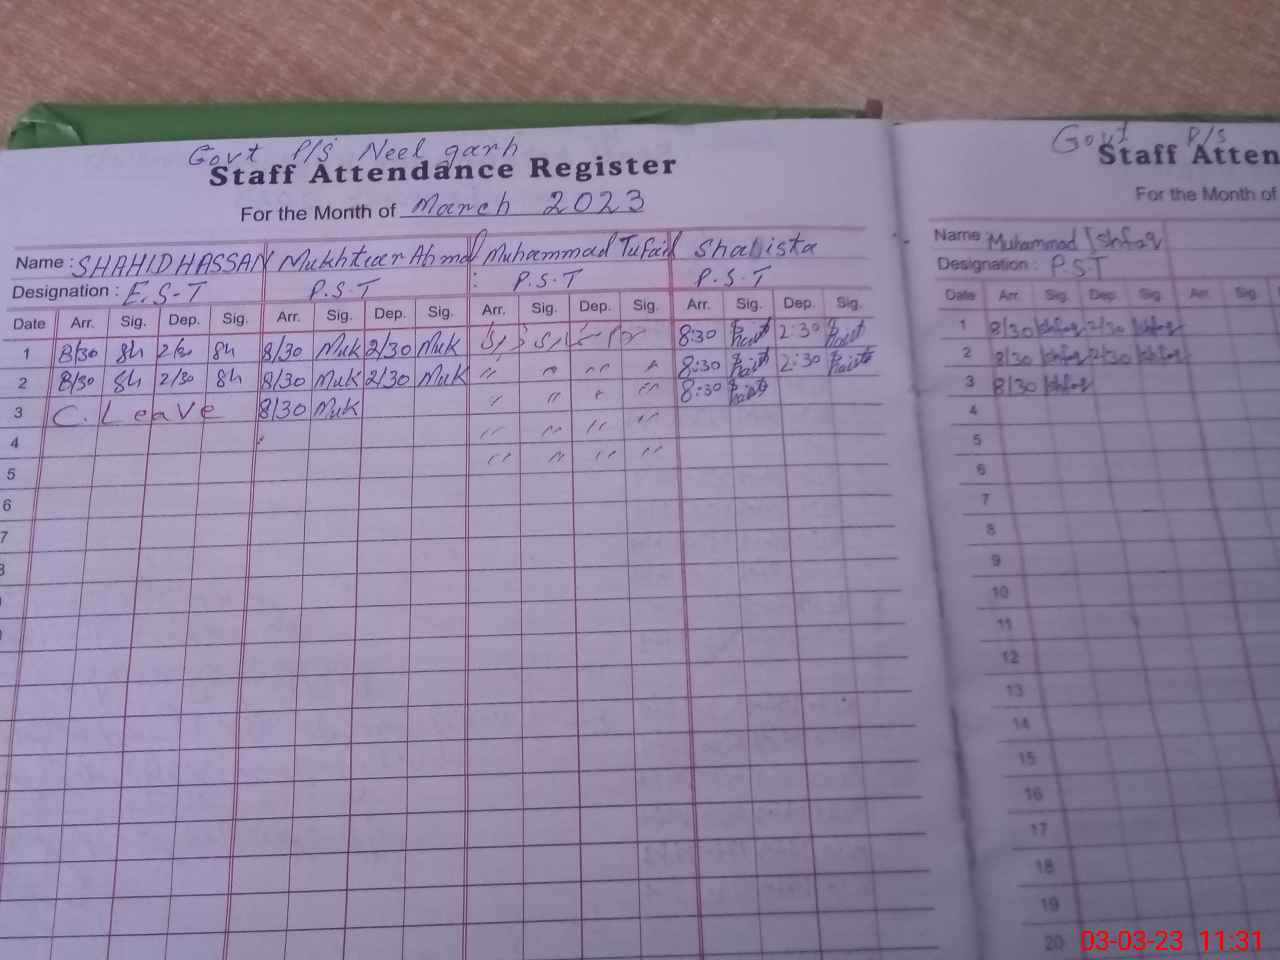 Govt P/s Neel garh
Staff Attendance Register
For the Month of March 2023
Name : SHAHID HASSAN Mukhtiar Ahmd Muhammad Tufail Shabista
Designation : E.S-T P.S.T : P.S.T P.S.T
Date Arr. Sig. Dep. Sig. Arr. Sig. Dep. Sig. Arr. Sig. Dep. Sig. Arr. Sig. Dep. Sig.
1 8/30 Sh 2/30 Sh 8/30 Muk 2/30 Muk 8:30 2:30
2 8/30 Sh 2/30 Sh 8/30 Muk 2/30 Muk " " " " 8:30 2:30
3 C. Leave 8/30 Muk " " " " 8:30
4 " " " "
5 " " " "
6
7
Govt P/s
Staff Atten
For the Month of
Name : Muhammad Ishfaq
Designation : P.S.T
Date Arr. Sig. Dep. Sig. Arr. Sig.
1 8/30 Ishfaq 2/30 Ishfaq
2 8/30 Ishfaq 2/30 Ishfaq
3 8/30 Ishfaq
4
5
6
7
8
9
10
11
12
13
14
15
16
17
18
19
20
03-03-23 11:31